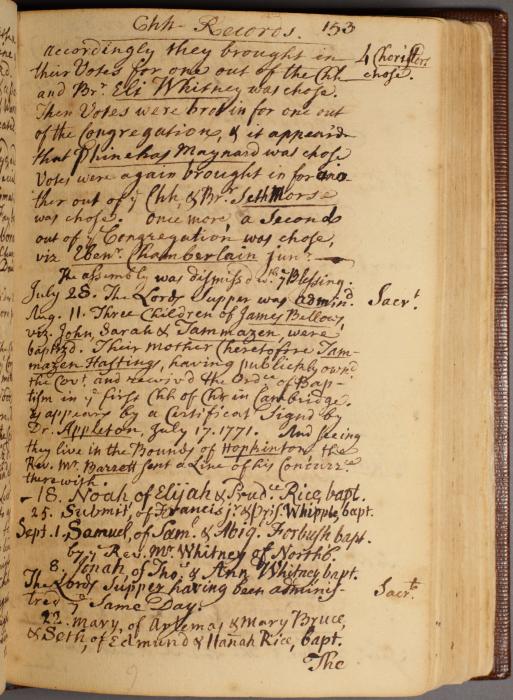 Chh Records. 153
accordingly they brought in 4 Choristers
their Votes for one out of the Chh chose.
and Br. Eli Whitney was chose.
Then Votes were bro't in for one out
of the Congregation, & it appeard
that Phinehas Maynard was chose
Votes were again brought in for ano
ther out of ye Chh, & Br. Seth Morse
was chose. once more, a Second
out of ye Congregation was chose,
viz Ebenr. Chamberlain junr.
The assembly was dismissd wth ye Blessing.
July 28. The Lords Supper was admind. Sacrt.
Aug. 11. Three Children of James Bellows,
viz. John, Sarah & Tammazen were
baptizd. Their mother (heretofore Tam-
mazen Hasting, having publickly ownd
the Covt. and receivd the Ordce of Bap-
tism in ye first Chh of Chr in Cambridge.
as appears by a Certificat Signd by
Dr. Appleton, July 17. 1771. And seeing
they live in the Bounds of Hopkinton, the
Rev. Mr. Barrett sent a Line of his Concurrce
therewith.
- 18. Noah of Elijah & Prudce Rice, bapt.
25. Submit, of Francis jr. & Pris. Whipple bapt.
Sept. 1. Samuel, of Saml. & Abig. Forbush bapt.
by ye Revd. Mr. Whitney of Northb.
8. Jonah of Thos. & Ann Whitney bapt.
The Lords Supper having been adminis- Sacrt.
tred ye Same Day.
22. Mary, of Artemas & Mary Bruce,
& Seth, of Edmund & Hannah Rice, bapt.
The